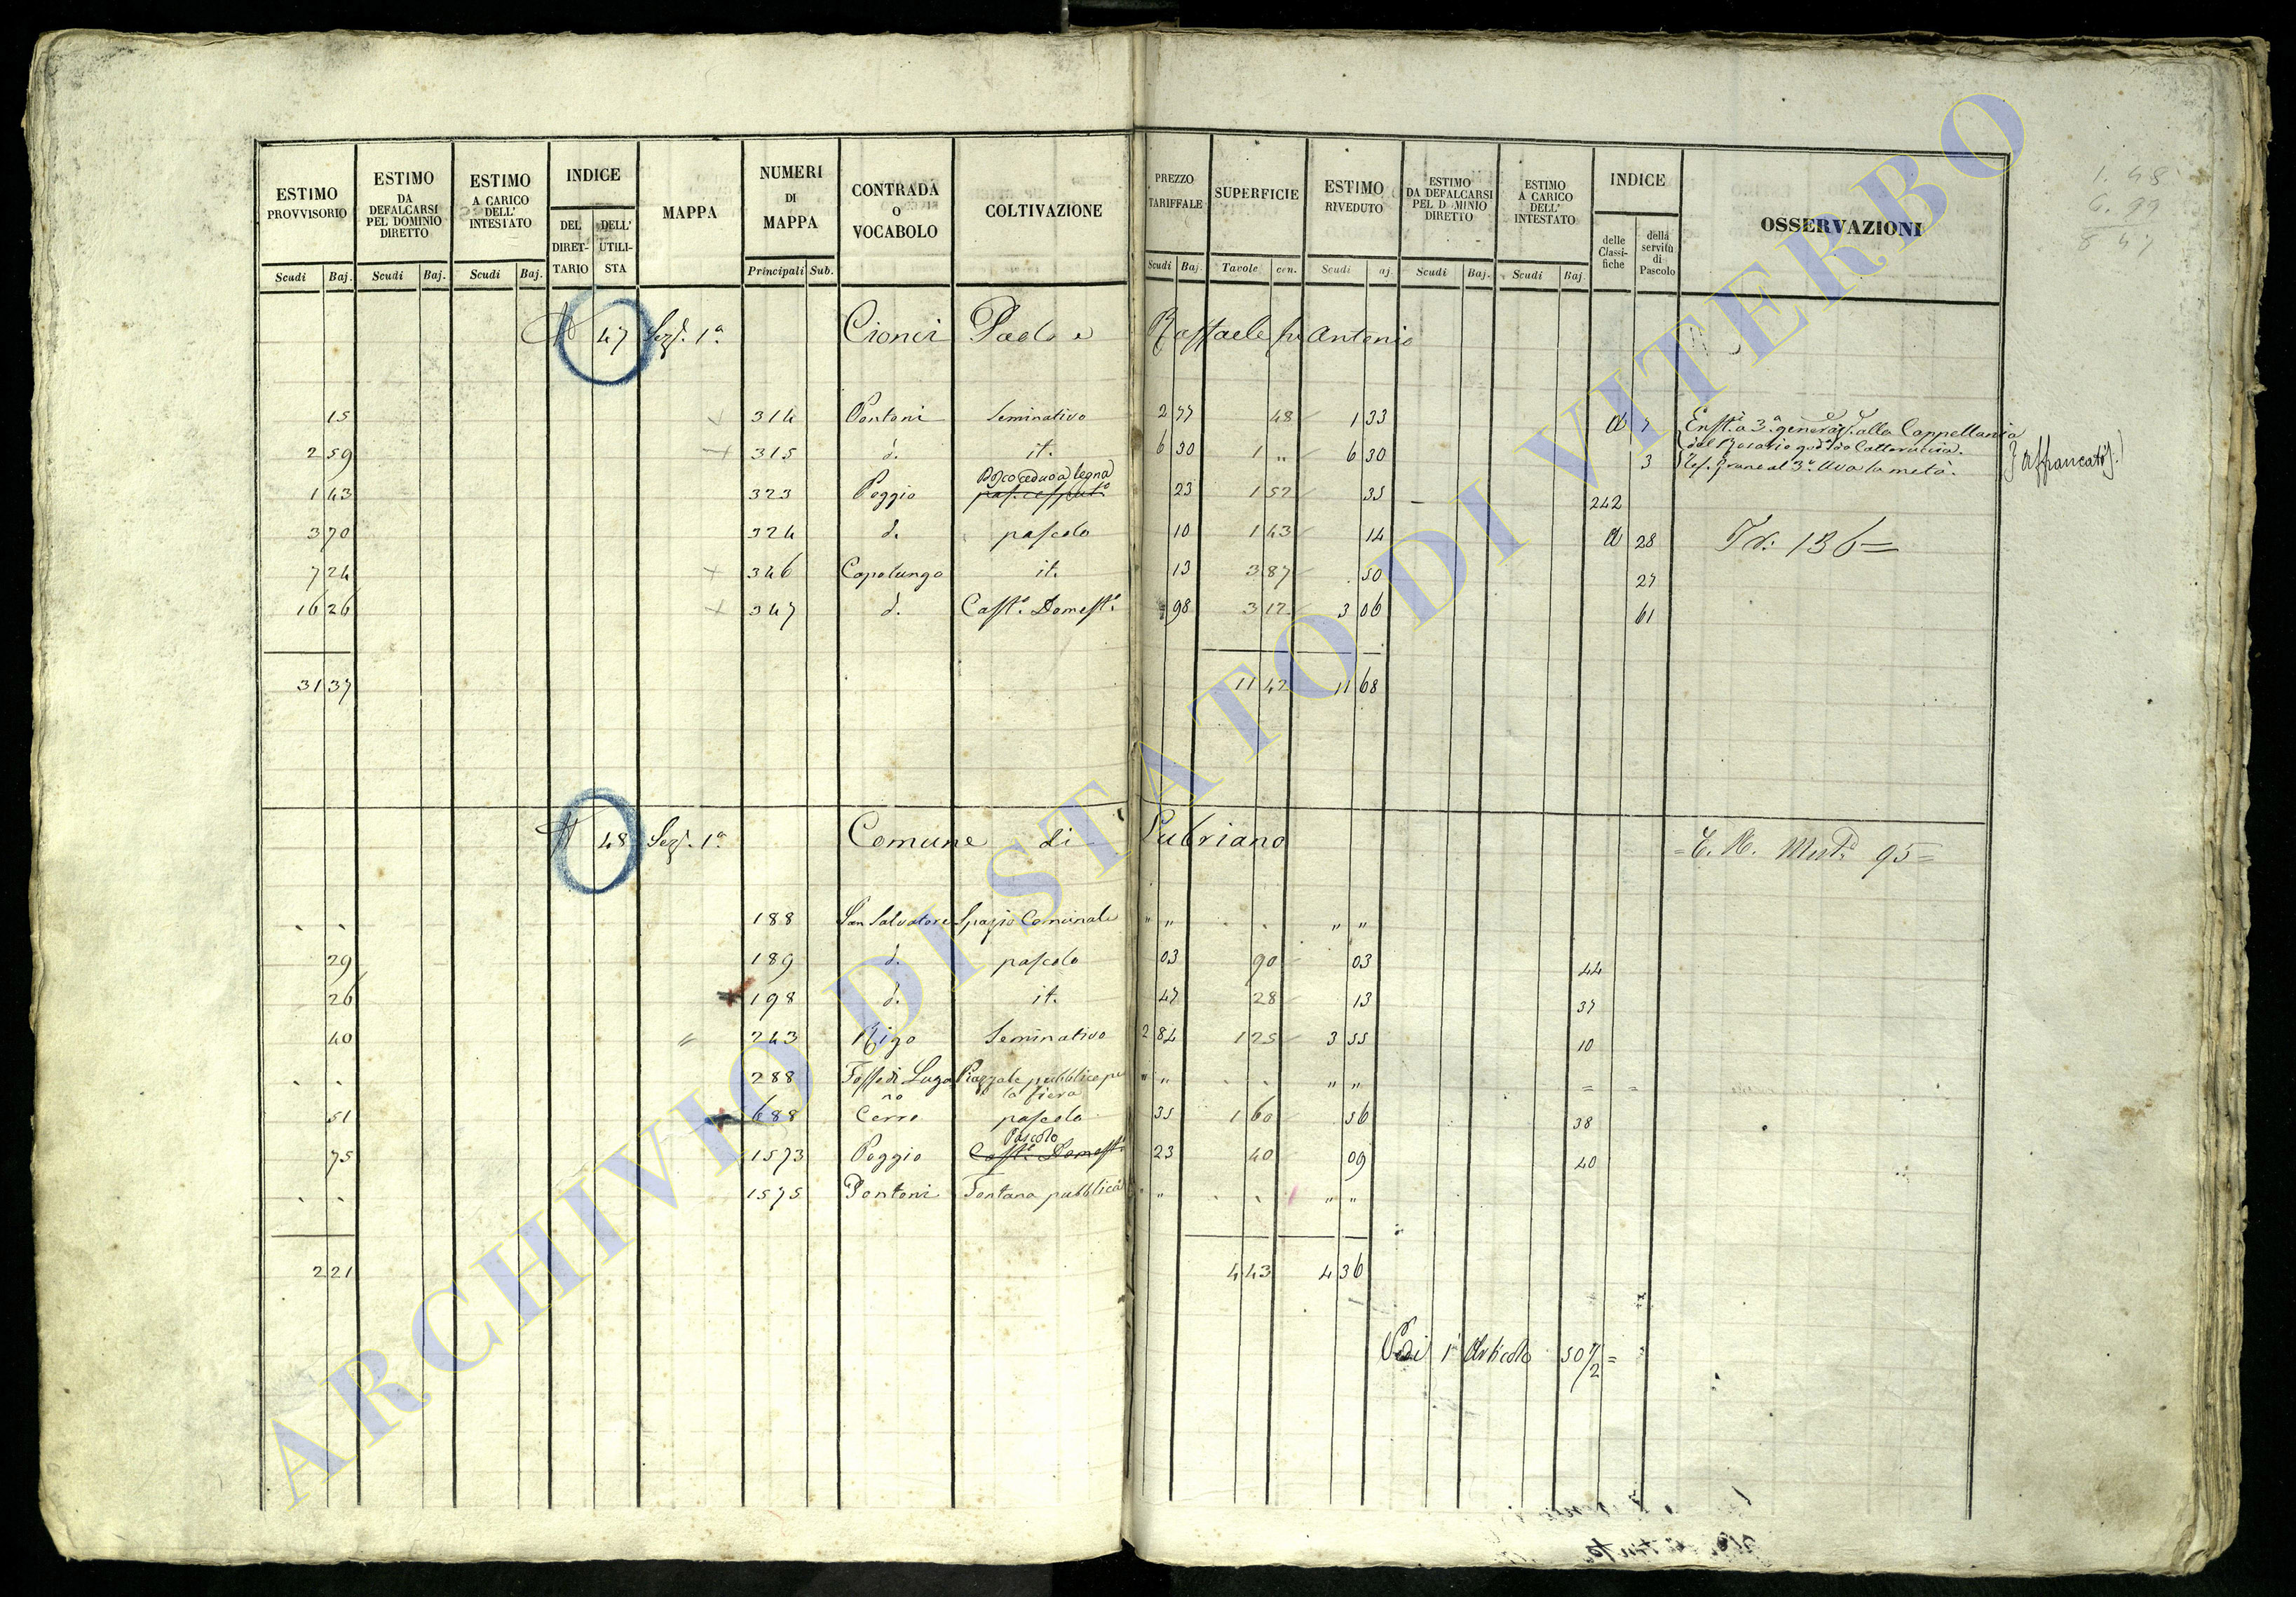 ESTIMO PROVVISORIO | ESTIMO DA DEFALCARSI PEL DOMINIO DIRETTO | ESTIMO A CARICO DELL' INTESTATO | INDICE | MAPPA | NUMERI DI MAPPA | CONTRADA O VOCABOLO | COLTIVAZIONE | PREZZO TARIFFALE | SUPERFICIE | ESTIMO RIVEDUTO | ESTIMO DA DEFALCARSI PEL D MINIO DIRETTO | ESTIMO A CARICO DELL' INTESTATO | INDICE | OSSERVAZIONI
DEL DIRETTARIO | DELL' UTILISTA | delle Classifiche | della servitù di Pascolo
Scudi | Baj. | Scudi | Baj. | Scudi | Baj. | Principali | Sub. | Scudi | Baj. | Tavole | cen. | Scudi | aj. | Scudi | Baj. | Scudi | Baj.
1. 48
6. 99
8 47
N 47 Sez. 1a Cionci Paolo e Raffaele fu Antonio
15 | 314 | Pontoni | Seminativo | 2 77 | 48 | 1 33 | d 7
2 59 | 315 | d. | it. | 6 30 | 1 „ | 6 30 | 3
Enft. a 3a generaz. alla Cappellania
del Rosario
al 3o Uva la metà.
} affrancato
Bosco ceduo a legna
1 43 | 323 | Poggio | 23 | 1 52 | 35 | 242
3 70 | 324 | d. | pascolo | 10 | 1 43 | 14 | d 28 | 136=
7 24 | 346 | Capolungo | it. | 13 | 3 87 | . 50 | 27
16 26 | 347 | d. | Casto. Domesto. | 98 | 3 12 | 3 06 | 61
31 37 | 11 42 | 11 68
N 48 Sez. 1a Comune di Lubriano = 95=
188 | San Salvatore | Spazio Comunale | „ „ | „ „
29 | 189 | d. | pascolo | 03 | 90 | 03 | 44
26 | 198 | d. | it. | 47 | 28 | 13 | 37
40 | 243 | Rigo | Seminativo | 2 84 | 1 25 | 3 55 | 10
288 | Fosse di Lugano | Piazzale pubblico per la fiera | „ „ | „ „ | = =
51 | 688 | Cerro | pascolo | 35 | 1 60 | 56 | 38
Pascolo
75 | 1573 | Poggio | Casto. Domesto. | 23 | 40 | 09 | 40
1575 | Pontoni | Fontana pubblica | „ | „ „
2 21 | 4 43 | 4 36
Vedi l' Articolo 50 1/2 =
ARCHIVIO DI STATO DI VITERBO